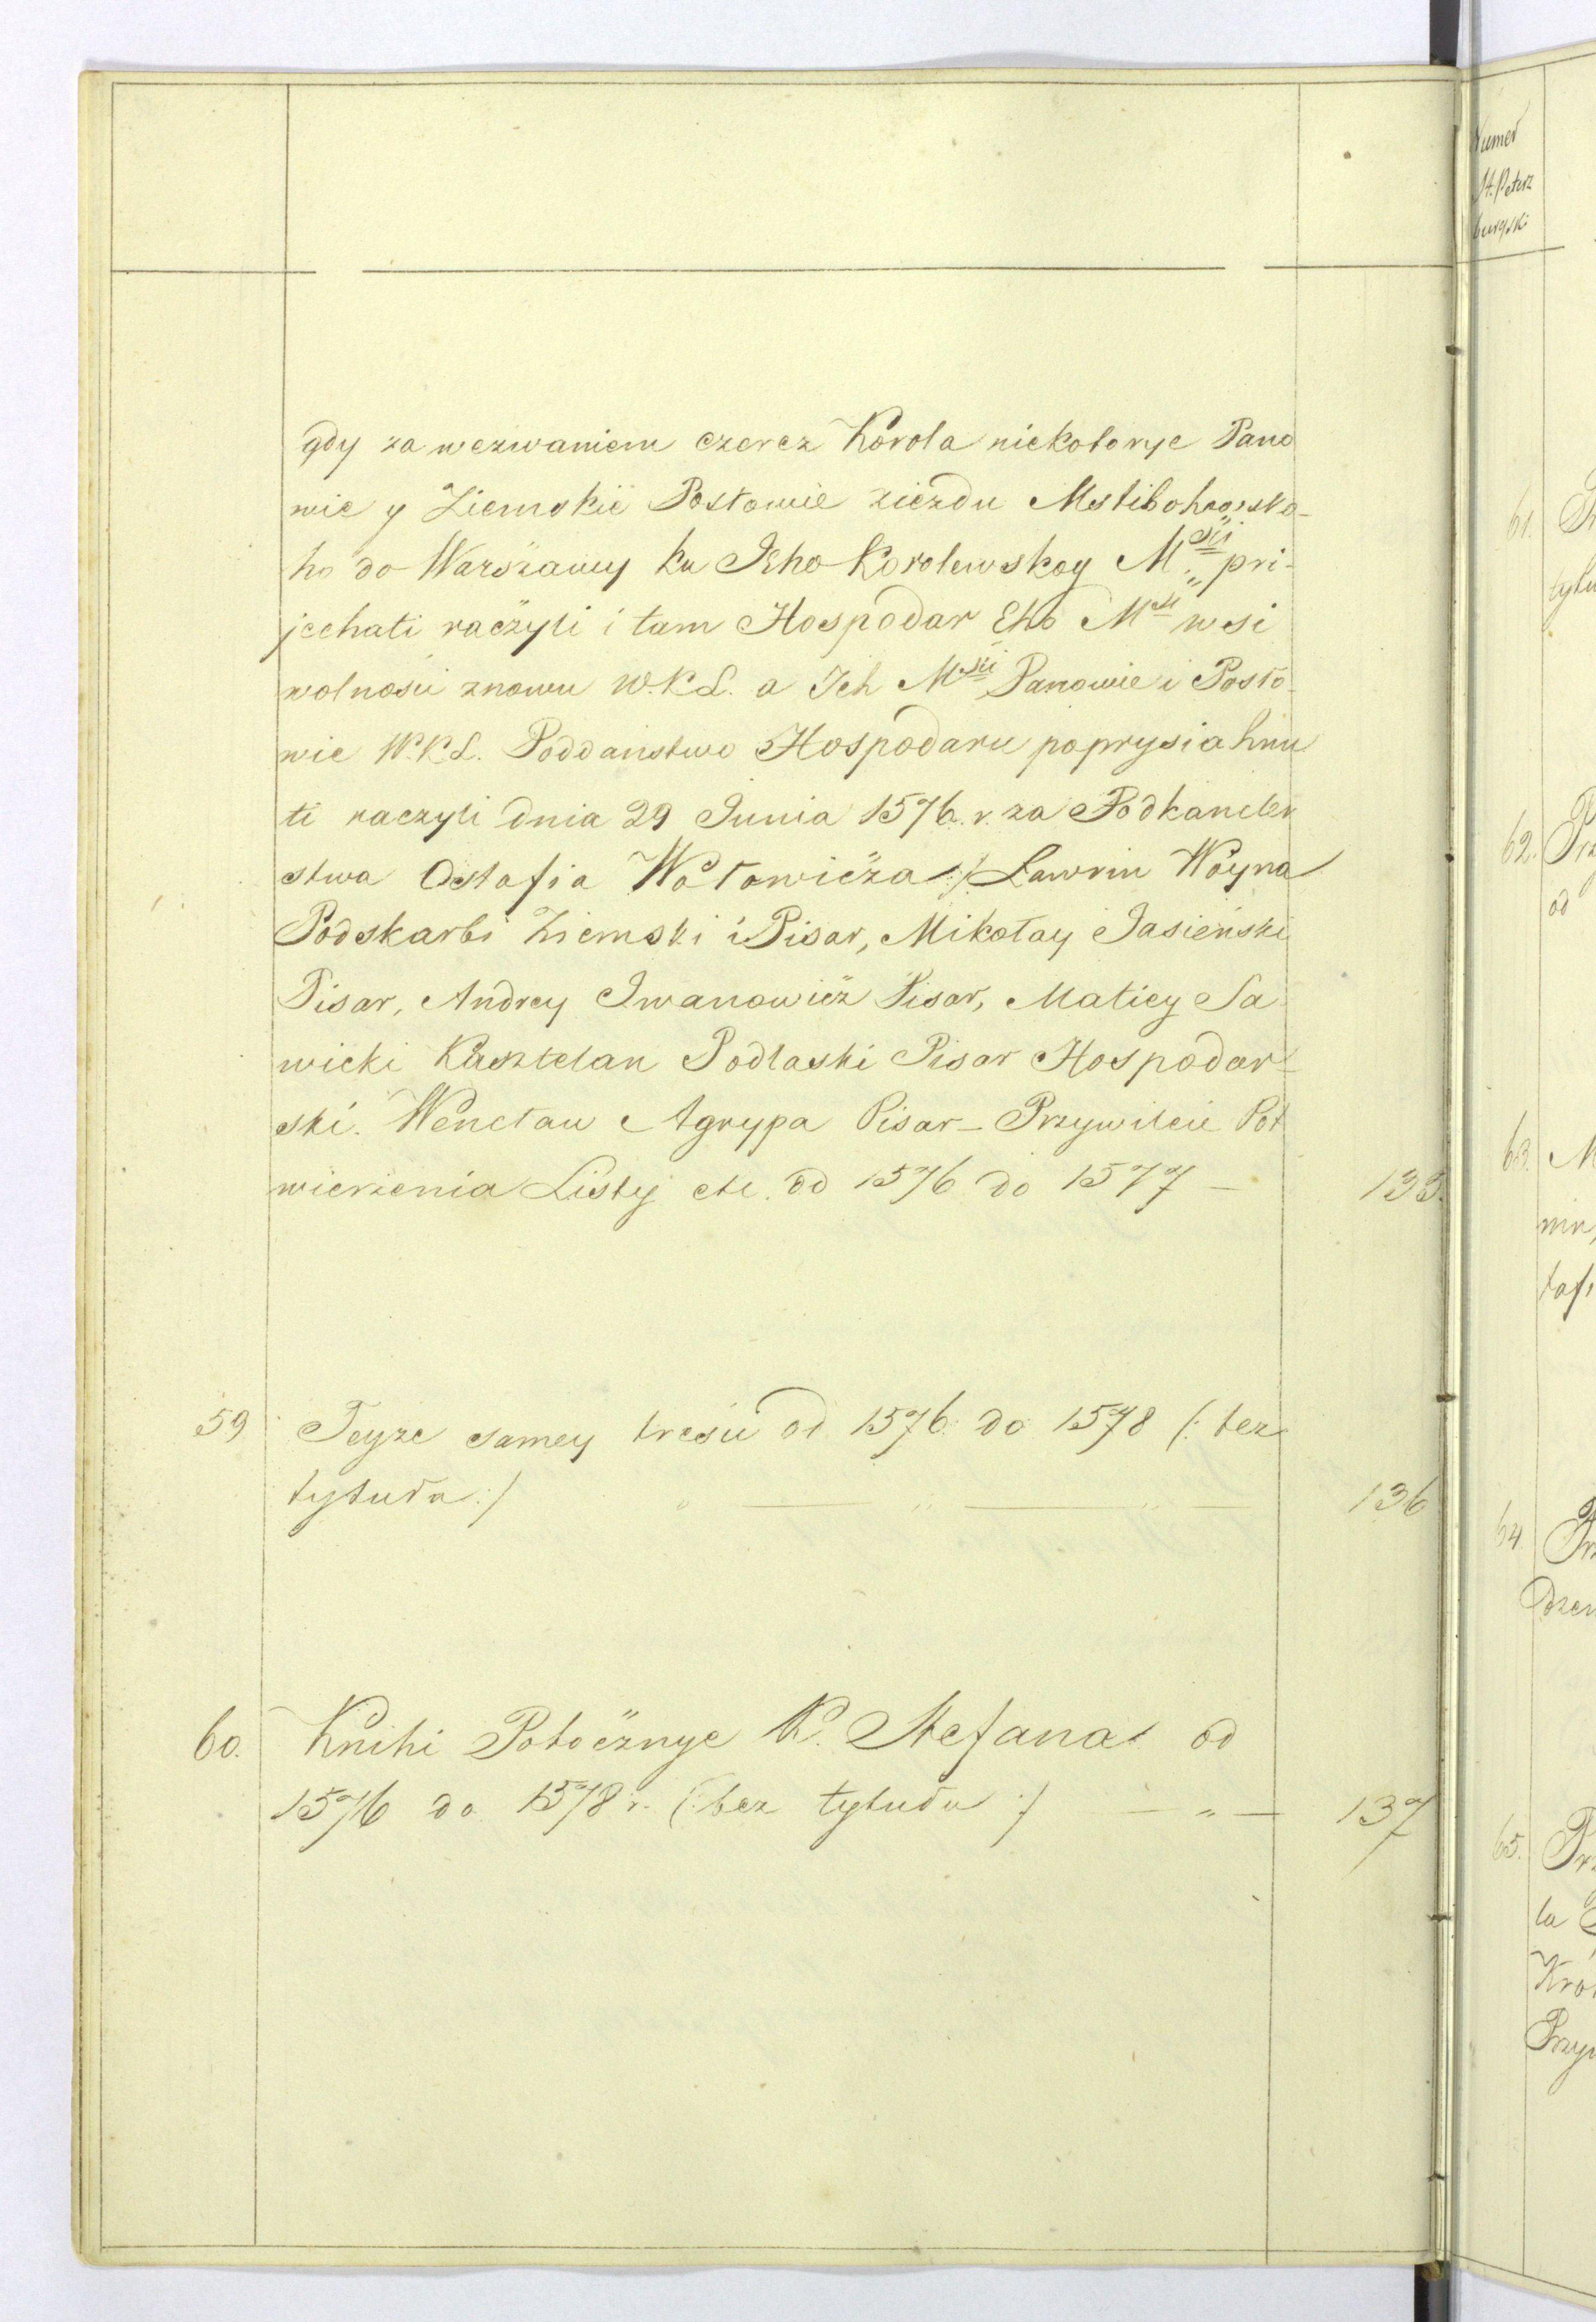 gdy za wezwaniem czerez Korola niekotorye Pano
wie y Ziemskie Posłowie ziezdu Mstibohowsko-
ho do Warszawy ku Jeho Korolewskoy Msti pri-
jechati raczyli i tam Hospodar Eho Msti wsi
wolności znowu W.K.L. a Ich Msti Panowie i Posło-
wie W.K.L. Poddaństwo Hospodaru poprysiahnu
ti raczyli dnia 29 Junia 1576. r. za Podkancler
stwa Ostafia Wołowicza :/ Lawrin Woyna
Podskarbi Ziemski i Pisar, Mikołay Jasieński
Pisar, Andrey Iwanowicz Pisar, Maticy Sa
wicki Kasztelan Podlaski Pisar Hospodar-
ski. Wencław Agrypa Pisar - Przywileie Pot
wierzenia Listy etc. od 1576 do 1577 — 135.
59 Teyże samey treści od 1576 do 1578 (: bez
tytułu :/ " — " — " — 136
60. Knihi Potocznye K. Stefana od
1576 do 1578 r. (: bez tytułu :/ — " — 137
Numer
St. Peters
burgski
61.
tytu
62. Prz
od
63. M
nin,
64. Prz
dzen
65. Prz
la
Kró
Przyw